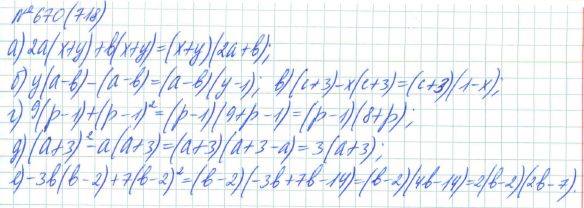 №670(718)
а) 2a(x+y)+в(x+y)=(x+y)(2a+в);
б) y(a-в)-(a-в)=(a-в)(y-1); в)(c+3)-x(c+3)=(c+3)(1-x);
г) 9(p-1)+(p-1)²=(p-1)(9+p-1)=(p-1)(8+p);
д) (a+3)²-a(a+3)=(a+3)(a+3-a)=3(a+3);
е) -3в(в-2)+7(в-2)²=(в-2)(-3в+7в-14)=(в-2)(4в-14)=2(в-2)(2в-7).